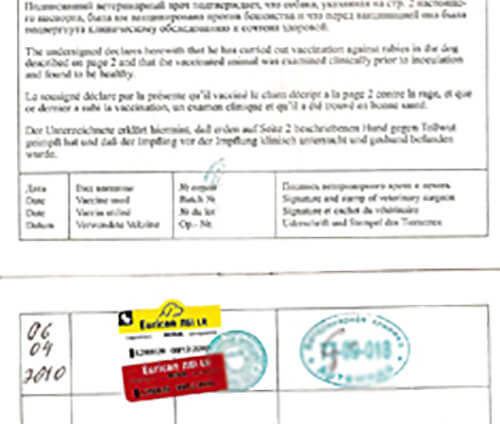 Подписавший ветеринарный врач подтверждает, что собака, указанная на стр. 2 настояще-
го паспорта, была им вакцинирована против бешенства и что перед вакцинацией она была
подвергнута клиническому обследованию и сочтена здоровой.
The undersigned declares herewith that he has carried out vaccination against rabies in the dog
described on page 2 and that the vaccinated animal was examined clinically prior to inoculation
and found to be healthy.
Le soussigné déclare par la présente qu'il vacciné le chien décript a la page 2 contre la rage, et que
ce dernier a subi la vaccination, un examen clinique et qu'il a été trouvé en bonne santé.
Der Unterzeichnete erklärt hiermit, daß er den auf Seite 2 beschriebenen Hund gegen Tollwut
geimpft hat und daß der Impfling vor der Impfung klinisch untersucht und gesund befunden
wurde.
Дата Вид вакцины № серии Подпись ветеринарного врача и печать
Date Vaccine used Batch № Signature and stamp of veterinary surgeon
Date Vaccin utilisé № du lot Signature et cachet du vétérinaire
Datum Verwendete Vakzine Op.- Nr. Unterschrift und Stempel des Tierarztes
06
04
2010
Eurican
LR
Eurican
LR